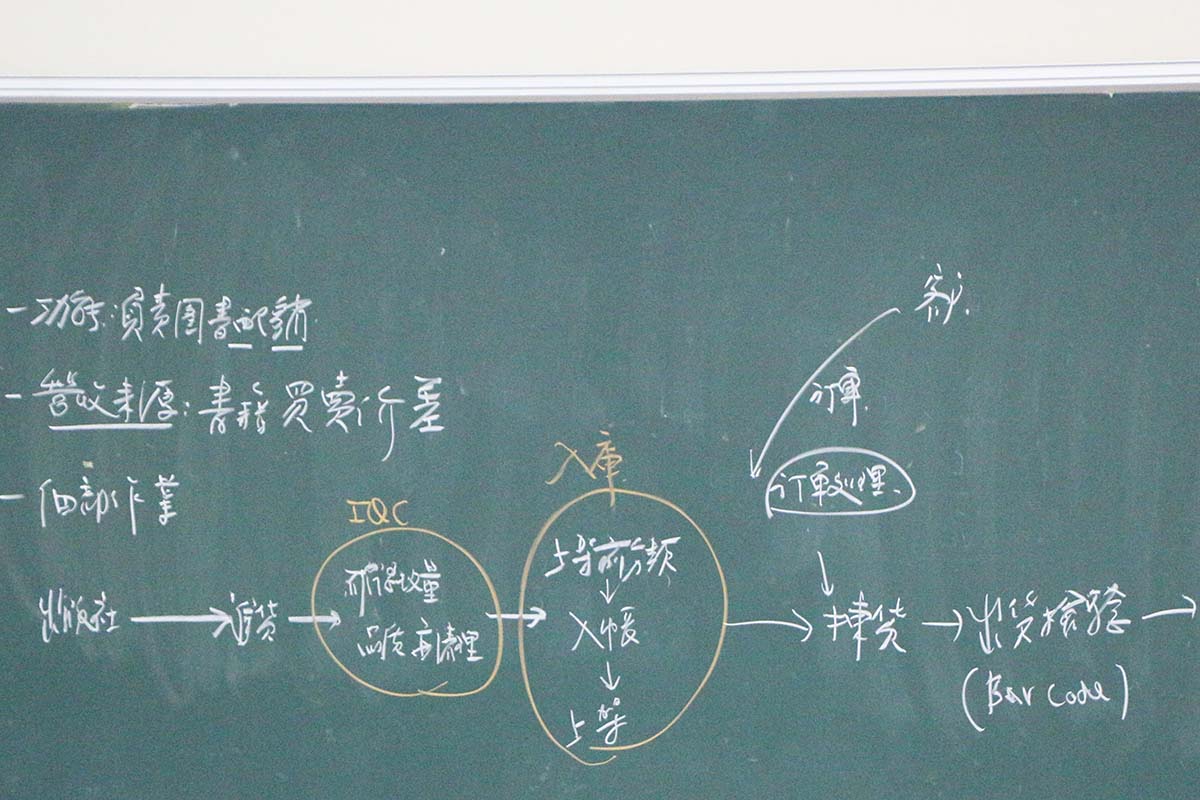 - 功能:負責圖書配銷
- 營收來源:書籍買賣價差
- 細部作業
客戶
訂單
訂單處理
入庫
IQC
出版社
進貨
確認數量
品質
上架前分類
入帳
上架
揀貨
出貨檢驗
(Bar Code)